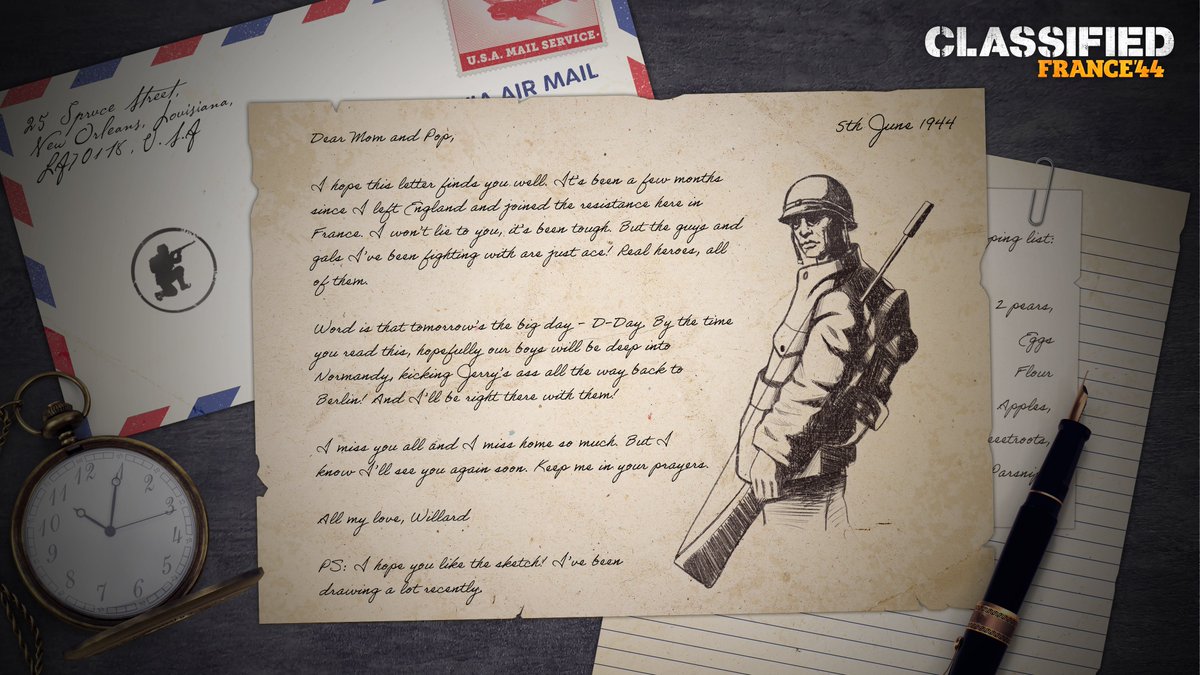 CLASSIFIED
FRANCE'44
U.S.A. MAIL SERVICE
VIA AIR MAIL
25 Spruce Street,
New Orleans, Louisiana,
LA70118, U.S.A
5th June 1944
Dear Mom and Pop,
I hope this letter finds you well. It's been a few months
since I left England and joined the resistance here in
France. I won't lie to you, it's been tough. But the guys and
gals I've been fighting with are just ace! Real heroes, all
of them.
Word is that tomorrow's the big day - D-Day. By the time
you read this, hopefully our boys will be deep into
Normandy, kicking Jerry's ass all the way back to
Berlin! And I'll be right there with them!
I miss you all and I miss home so much. But I
know I'll see you again soon. Keep me in your prayers.
All my love, Willard
PS: I hope you like the sketch! I've been
drawing a lot recently.
12
1
2
3
4
5
6
7
8
9
10
11
list:
2 pears,
Eggs
Flour
Apples,